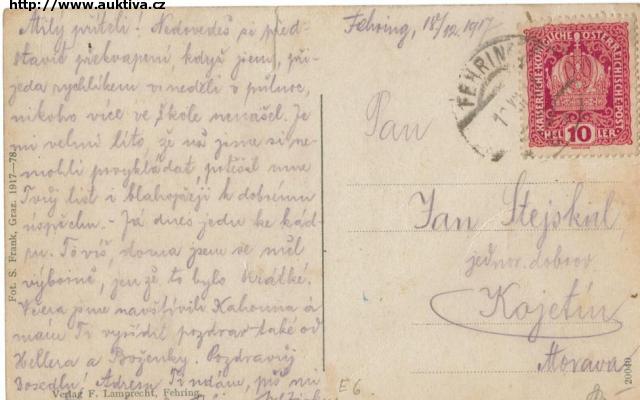 www.auktiva.cz
Milý příteli! Nedovedeš si před-
stavit překvapení, když jsem, při-
jeda rychlíkem v neděli o půlnoci,
nikoho více ve škole nenašel. Je
mi velmi líto, že už jsme si ne-
mohli
Tvůj list a blahopřeji k dobrému
úspěchu. - Já dnes jedu ke kád-
ru. To víš, doma jsem se měl
výborně, jen že to bylo krátké.
Včera jsme navštívili Kahouna a
mám Ti vyřídit pozdrav také od
Hellera a Boženky. Pozdravuj
Adresu Ti udám, piš mi
Fot. S. Frank, Graz. 1917—78.
Verlag F. Lamprecht, Fehring.
Fehring, 18/12. 1917
FEHRING
KAISERLICHE KÖNIGLICHE ÖSTERREICHISCHE POST
HEL 10 LER
Pan
Jan Stejskal
jednor. dobrov
Kojetín
Morava
E6
20040